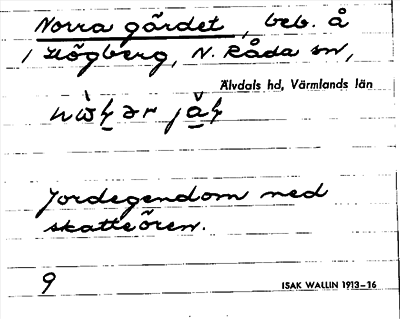 Norra gärdet, beb. å
1 Högberg, N. Råda sn,
Älvdals hd, Värmlands län
Jordegendom med
skatteören.
9
ISAK WALLIN 1913–16